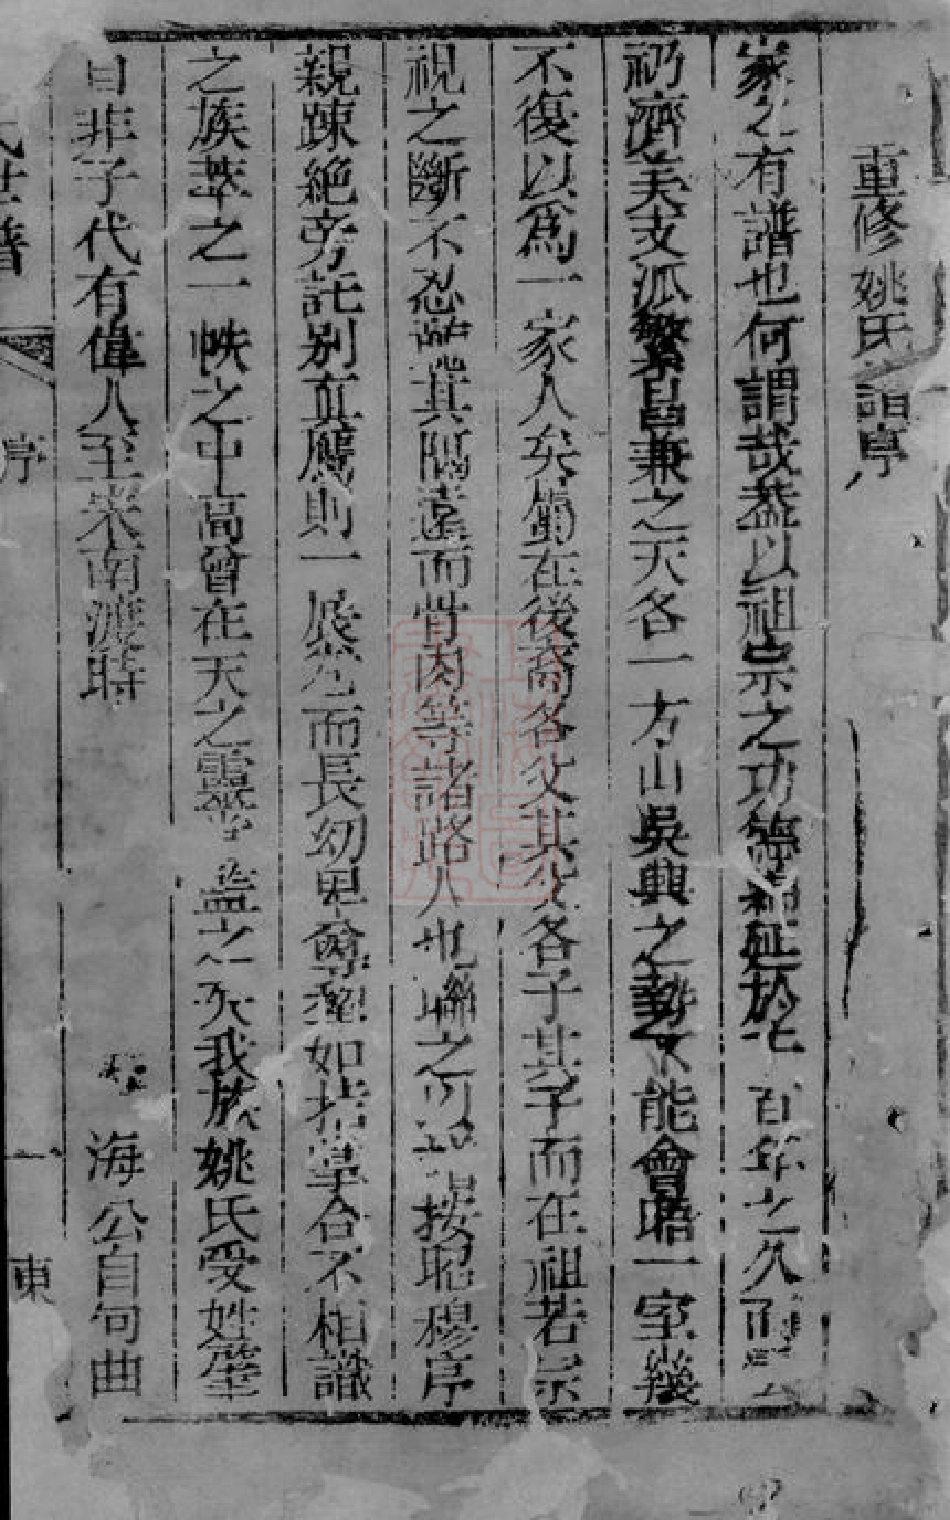 重修姚氏譜序
家之有譜也何謂哉蓋以祖宗之功德綿延於七百年之久而
礽濟美支派繁昌兼之天各一方山吳興之勢不能會晤一室幾
不復以爲一家人矣在後裔各父其父各子其子而在祖若宗
視之斷不忍其隔遠而骨肉等諸路人也聯之可按昭穆序
親踈絕旁託別直贋則一展卷而長幼卑尊如指掌合不相識
之族萃之一帙之中高曾在天之靈我族姚氏受姓
非子代有偉人至宋南渡時 海公自句曲
氏世譜 序 一 東